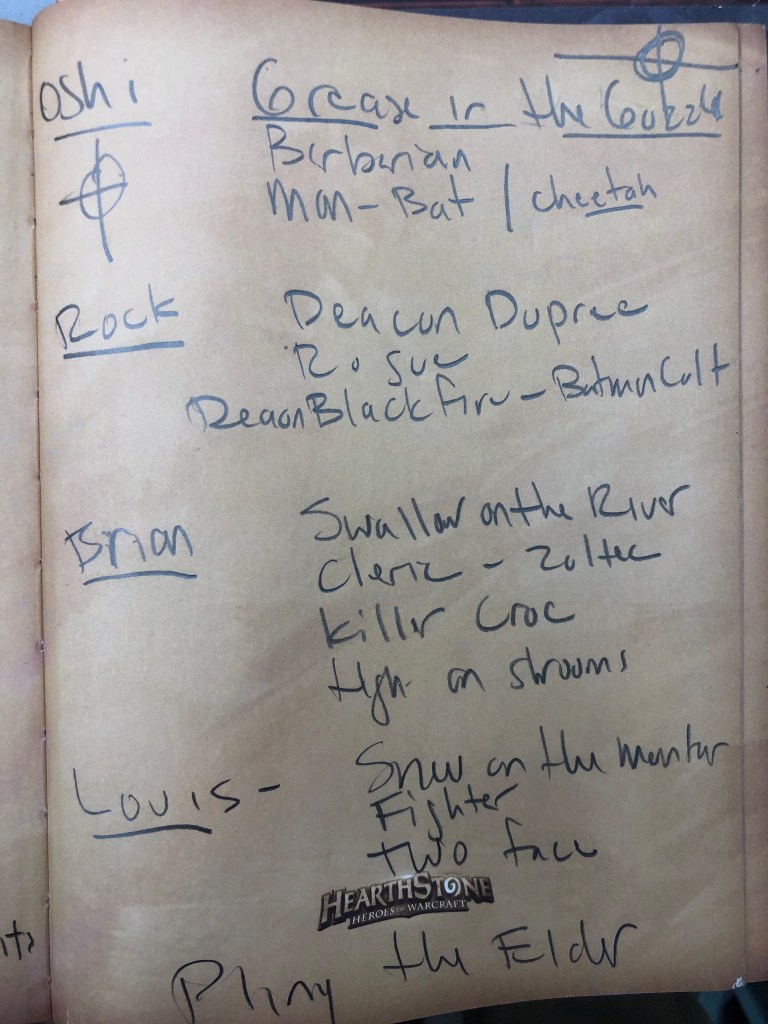 Oshi Grease in the Guzzle
Barbarian
Man-Bat / Cheetah
Rock Deacon Dupree
Rogue
Deacon Blackfire - Batman Cult
Brian Swallow on the River
Cleric - Zoltec
Killer Croc
High on shrooms
Louis - Snow on the
Fighter
Two face
HEARTHSTONE
HEROES OF WARCRAFT
Pliny the Elder